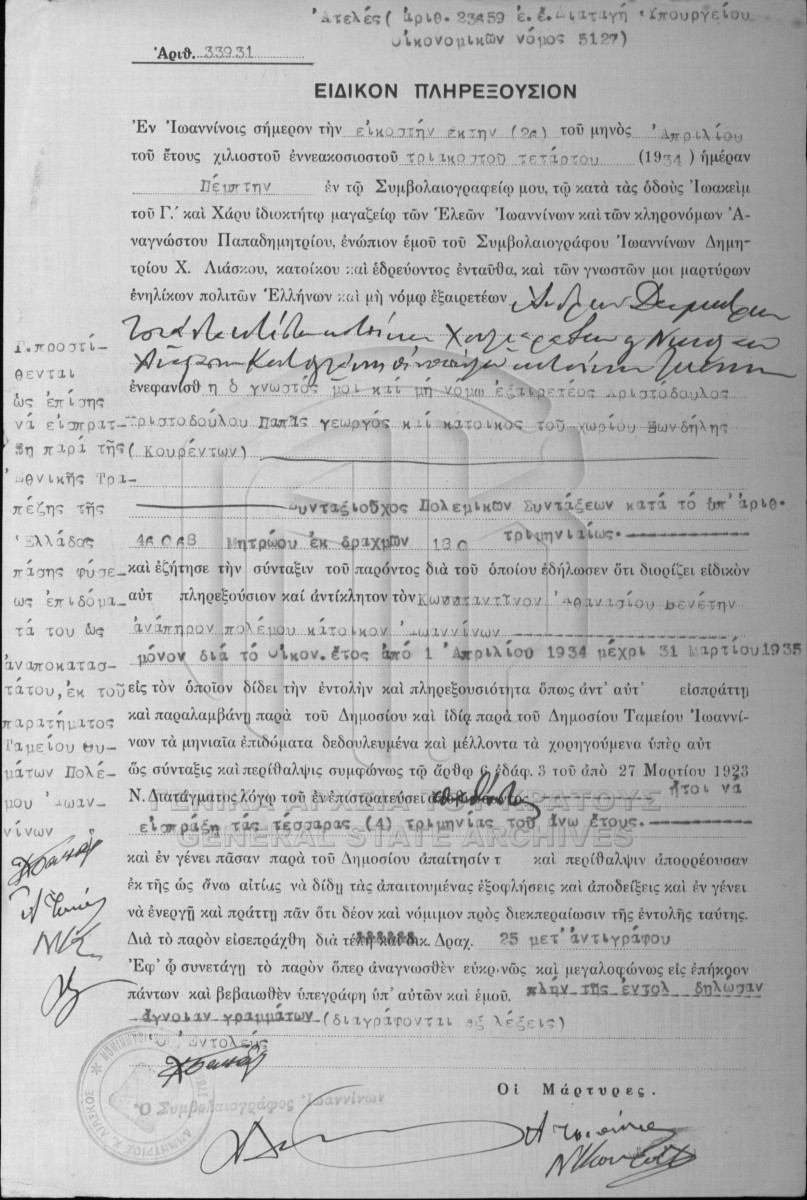 Ἀτελές( ἀριθ. 23659 ἐ.ἔ.Διαταγή Ὑπουργείου
Οἰκονομικῶν νόμος 5127)
Ἀριθ. 33931
ΕΙΔΙΚΟΝ ΠΛΗΡΕΞΟΥΣΙΟΝ
Ἐν Ἰωαννίνοις σήμερον τὴν εἰκοστήν ἕκτην (26) τοῦ μηνὸς Ἀπριλίου
τοῦ ἔτους χιλιοστοῦ ἐννεακοσιοστοῦ τριακοστοῦ τετάρτου (1934) ἡμέραν
Πέμπτην ἐν τῷ Συμβολαιογραφείῳ μου, τῷ κατὰ τὰς ὁδοὺς Ἰωακεὶμ
τοῦ Γ.΄ καὶ Χάρυ ἰδιοκτήτῳ μαγαζείῳ τῶν Ἐλεῶν Ἰωαννίνων καὶ τῶν κληρονόμων Ἀ-
ναγνώστου Παπαδημητρίου, ἐνώπιον ἐμοῦ τοῦ Συμβολαιογράφου Ἰωαννίνων Δημη-
τρίου Χ. Λιάσκου, κατοίκου καὶ ἑδρεύοντος ἐνταῦθα, καὶ τῶν γνωστῶν μοι μαρτύρων
ἐνηλίκων πολιτῶν Ἑλλήνων καὶ μὴ νόμῳ ἐξαιρετέων
ἐνεφανίσθη ὁ γνωστός μοι καί μή νόμῳ ἐξαιρετέος Χριστόδουλος
Χριστοδούλου Παπᾶς γεωργός καί κάτοικος τοῦ χωρίου Ζωνδήλης
(Κουρέντων)
Συνταξιοῦχος Πολεμικῶν Συντάξεων κατά τό ὑπ'ἀριθ.
46068 Μητρώου ἐκ δραχμῶν 180 τριμηνιαίως.
καὶ ἐζήτησε τὴν σύνταξιν τοῦ παρόντος διὰ τοῦ ὁποίου ἐδήλωσεν ὅτι διορίζει εἰδικὸν
αὐτ πληρεξούσιον καὶ ἀντίκλητον τὸν Κωνσταντῖνον Ἀθανασίου Βενέτην
ἀνάπηρον πολέμου κάτοικον Ἰωαννίνων
μόνον διά τό οἰκον. ἔτος ἀπό 1 Ἀπριλίου 1934 μέχρι 31 Μαρτίου 1935
εἰς τὸν ὁποῖον δίδει τὴν ἐντολὴν καὶ πληρεξουσιότητα ὅπως ἀντ' αὐτ εἰσπράττῃ
καὶ παραλαμβάνῃ παρὰ τοῦ Δημοσίου καὶ ἰδίᾳ παρὰ τοῦ Δημοσίου Ταμείου Ἰωαννί-
νων τὰ μηνιαῖα ἐπιδόματα δεδουλευμένα καὶ μέλλοντα τὰ χορηγούμενα ὑπὲρ αὐτ
ὡς σύνταξις καὶ περίθαλψις συμφώνως τῷ ἄρθρῳ 6 ἐδάφ. 3 τοῦ ἀπὸ 27 Μαρτίου 1923
Ν. Διατάγματος λόγῳ τοῦ ἐν ἐπιστρατεύσει ἤτοι νά
εἰσπράξῃ τάς τέσσαρας (4) τριμηνίας τοῦ ἄνω ἔτους.
καὶ ἐν γένει πᾶσαν παρὰ τοῦ Δημοσίου ἀπαίτησίν τ καὶ περίθαλψιν ἀπορρέουσαν
ἐκ τῆς ὡς ἄνω αἰτίας νὰ δίδῃ τὰς ἀπαιτουμένας ἐξοφλήσεις καὶ ἀποδείξεις καὶ ἐν γένει
νὰ ἐνεργῇ καὶ πράττῃ πᾶν ὅτι δέον καὶ νόμιμον πρὸς διεκπεραίωσιν τῆς ἐντολῆς ταύτης.
Διὰ τὸ παρὸν εἰσεπράχθη διὰ τέλη καὶ δικ. Δραχ. 25 μετ'ἀντιγράφου
Ἐφ' ᾧ συνετάγη τὸ παρὸν ὅπερ ἀναγνωσθὲν εὐκρινῶς καὶ μεγαλοφώνως εἰς ἐπήκρον
πάντων καὶ βεβαιωθὲν ὑπεγράφη ὑπ' αὐτῶν καὶ ἐμοῦ. πλήν τῆς ἐντολ δηλώσαν
ἄγνοιαν γραμμάτων (διαγράφονται ἕξ λέξεις)
Ὁ Ἐντολεύς
Οἱ Μάρτυρες.
Ὁ Συμβολαιογράφος Ἰωαννίνων
ΔΗΜΗΤΡΙΟΣ Χ. ΛΙΑΣΚΟΣ
Γ.προστί-
θενται
ὡς ἐπίσης
νά εἰσπρατ-
ῃ παρά τῆς
Ἐθνικῆς Τρα-
πέζης τῆς
Ἑλλάδος
πάσης φύσε-
ως ἐπιδόμα-
τά του ὡς
ἀναποκατασ-
τάτου, ἐκ τοῦ
παρατήματος
Ταμείου Θυ-
μάτων Πολέ-
μου Ἰωαν-
νίνων
ΓΕΝΙΚΑ ΑΡΧΕΙΑ ΤΟΥ ΚΡΑΤΟΥΣ
GENERAL STATE ARCHIVES